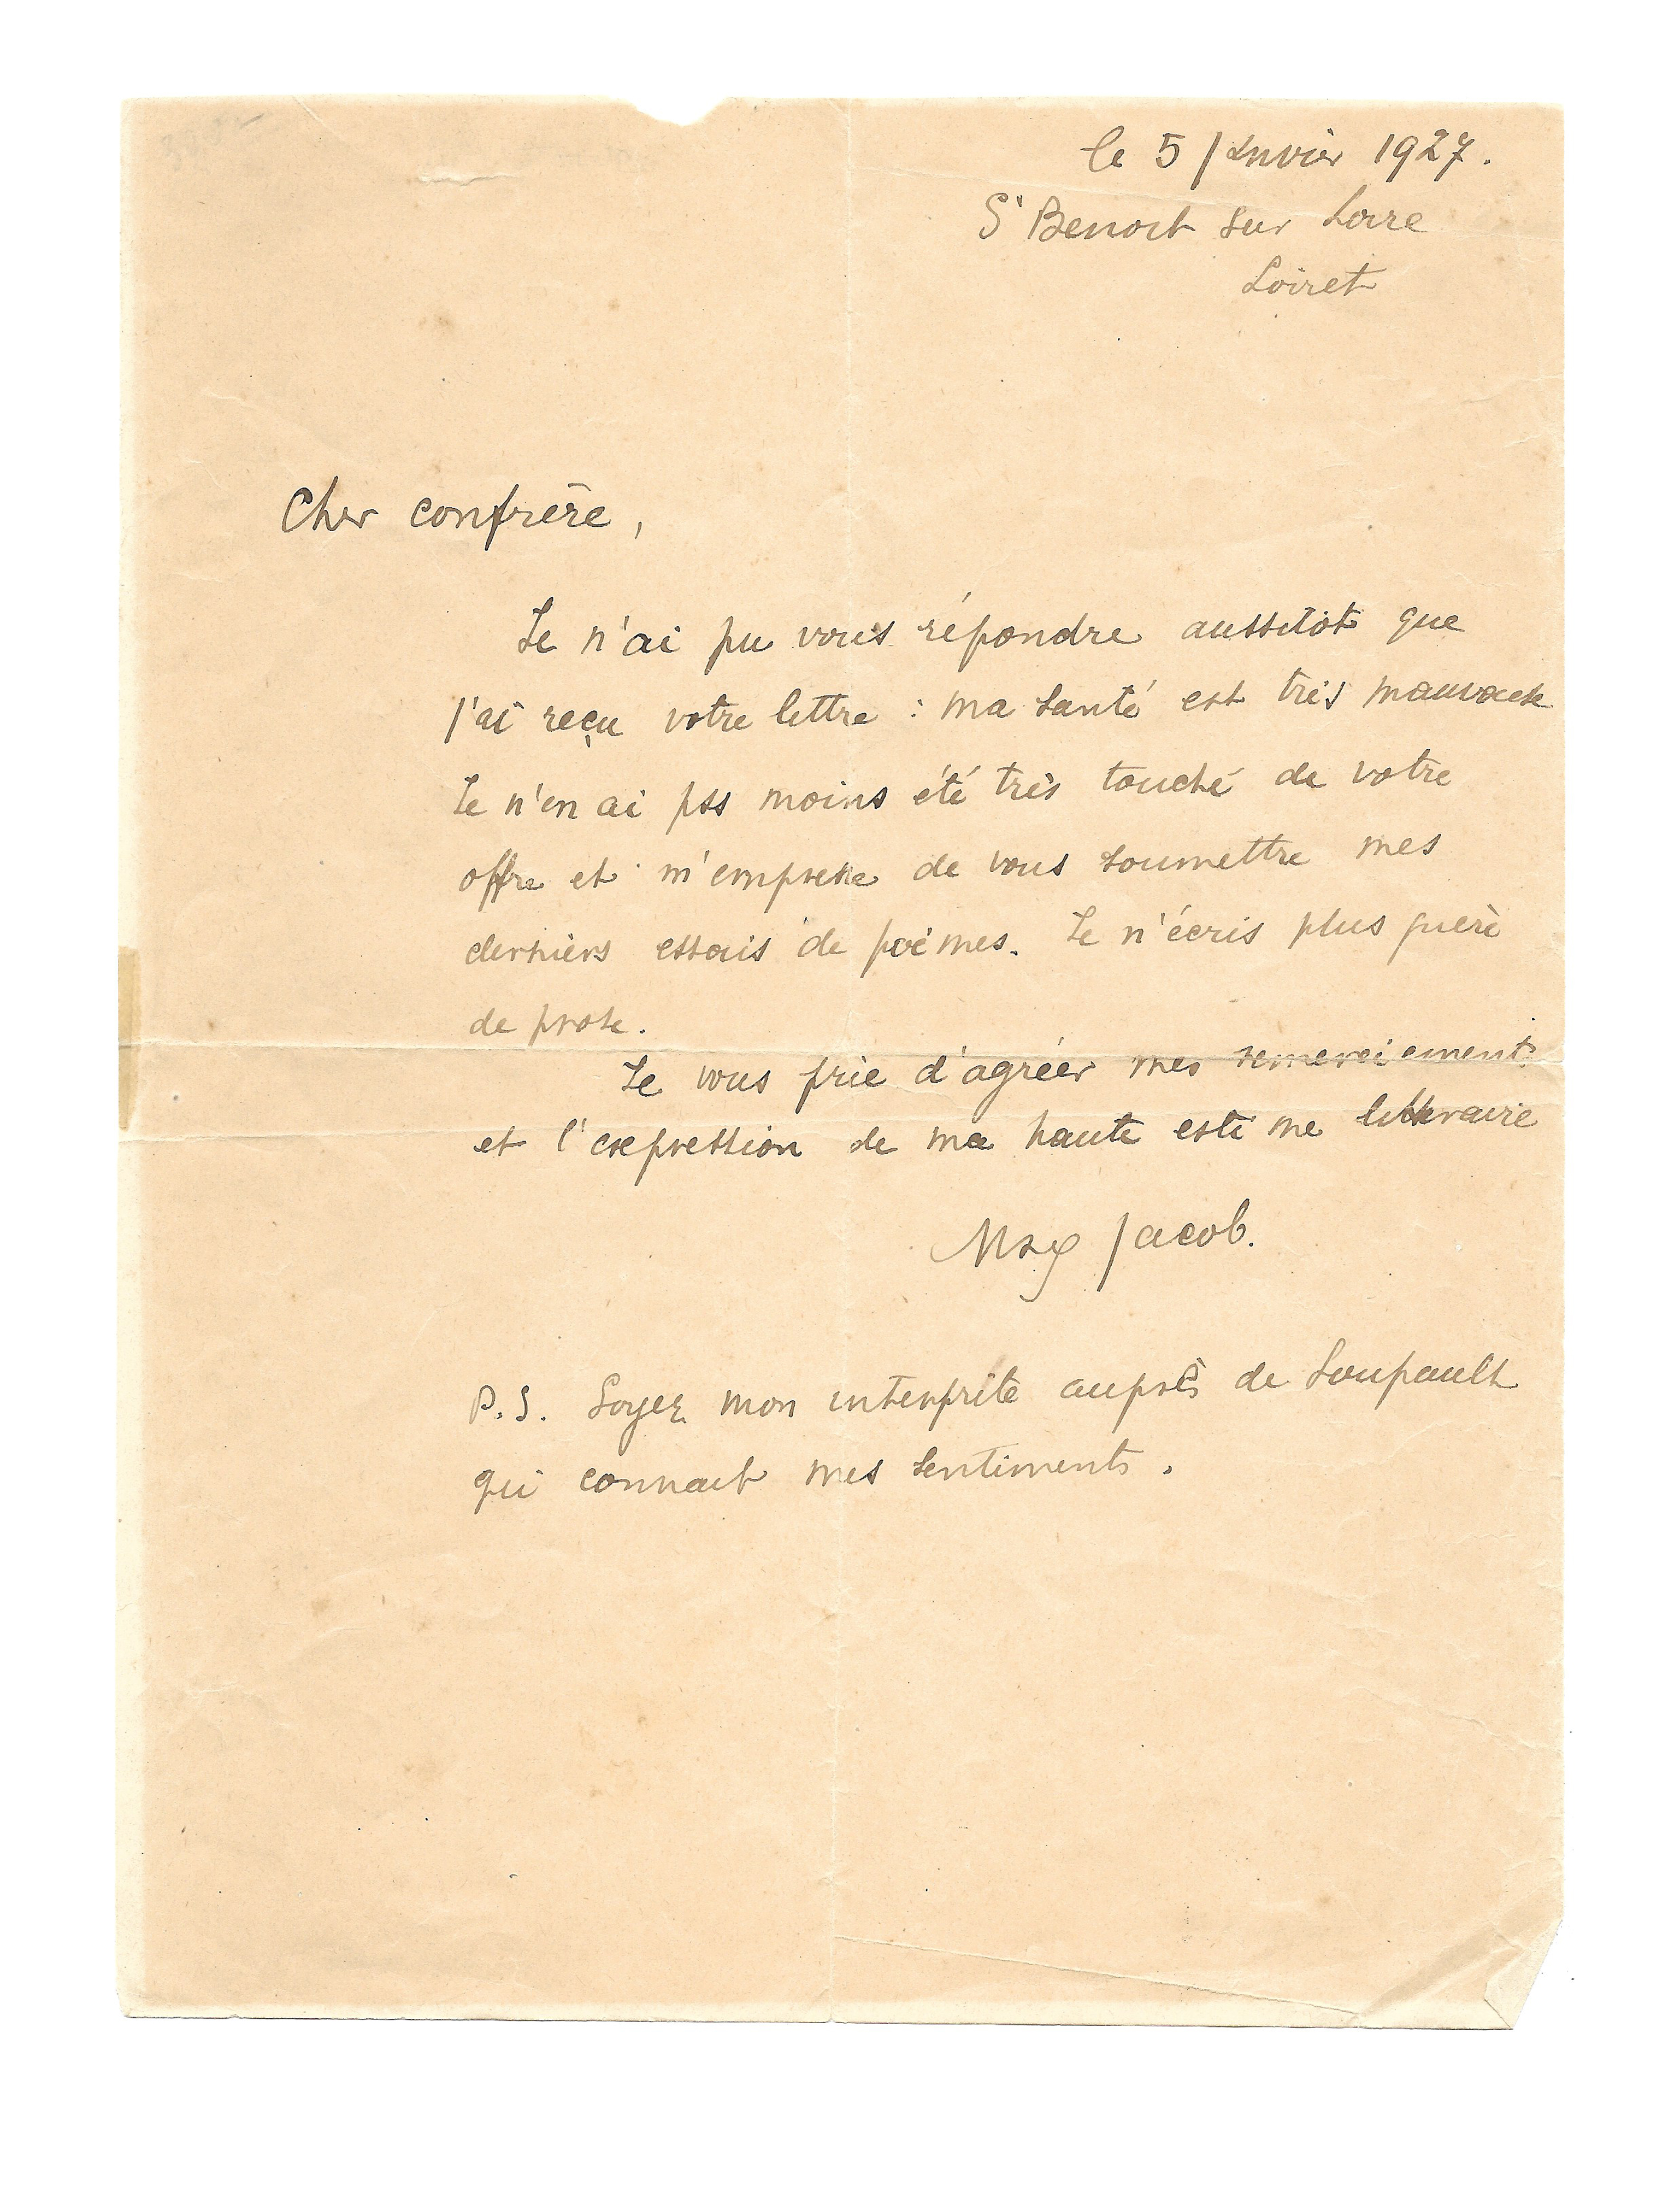 le 5 Janvier 1927.
St Benoit sur Loire
Loiret
Cher confrère,
Je n'ai pu vous répondre aussitôt que
j'ai reçu votre lettre : ma santé est très mauvaise
Je n'en ai pas moins été très touché de votre
offre et m'empresse de vous soumettre mes
derniers essais de poèmes. Je n'écris plus guère
de prose.
Je vous prie d'agréer mes remerciements
et l'expression de ma haute estime littéraire
Max Jacob.
P.S. Soyez mon interprète auprès de Soupault
qui connait mes sentiments.